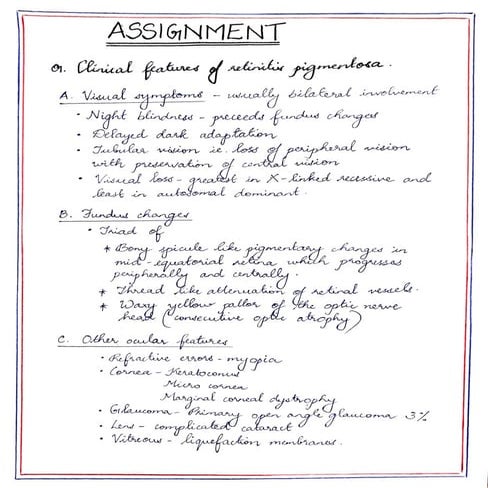 ASSIGNMENT
Q1. Clinical features of retinitis pigmentosa.
A. Visual symptoms - usually bilateral involvement
• Night blindness - preceeds fundus changes
• Delayed dark adaptation
• Tubular vision ie. loss of peripheral vision
with preservation of central vision
• Visual loss - greatest in X-linked recessive and
least in autosomal dominant.
B. Fundus changes
• Triad of
* Bony spicule like pigmentary changes in
mid-equatorial retina which progresses
peripherally and centrally.
* Thread like attenuation of retinal vessels.
* Waxy yellow pallor of the optic nerve
head (consecutive optic atrophy)
C. Other ocular features
• Refractive errors - myopia
• Cornea - Keratoconus
Micro cornea
Marginal corneal dystrophy
• Glaucoma - Primary open angle glaucoma 3%
• Lens - complicated cataract
• Vitreous - liquefaction membranes.